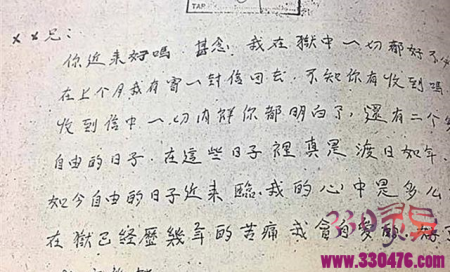 TAP
××兄:
你近来好嗎. 甚念. 我在獄中一切都好不
在上个月我有寄一封信回去. 不知你有收到嗎
收到信中一切内 你都明白了, 還有二个
自由的日子. 在這些日子裡真是渡日如年.
如今自由的日子近来臨. 我的心中是多么
在獄已経歷幾年的苦痛我會自愛的
www.330476.com